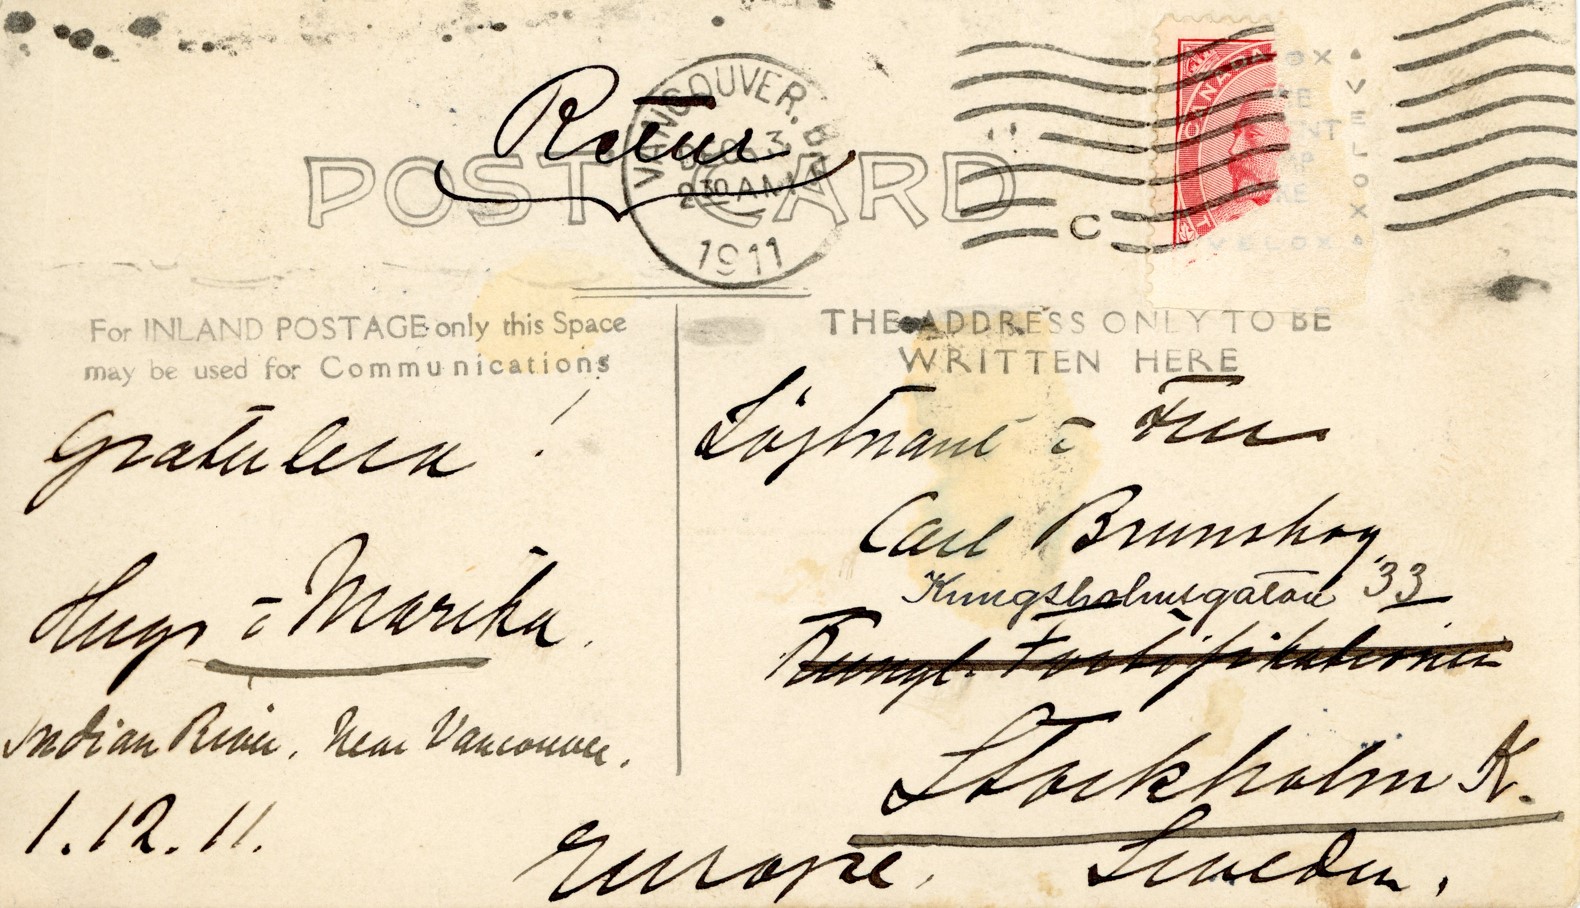 Retur
POST CARD
VANCOUVER. B.C.
DEC 3
2 30 AM
1911
C
CANADA
VELOX
VELOX
For INLAND POSTAGE only this Space
may be used for Communications
THE ADDRESS ONLY TO BE
WRITTEN HERE
Gratulera!
Hugo & Marika.
Indian River. Near Vancouver.
1.12.11.
Löjtnant & Fru
Carl Brunskog
Kungsholmsgatan 33
Kungl. Fortifikationen
Stockholm K.
Europe. Sweden.